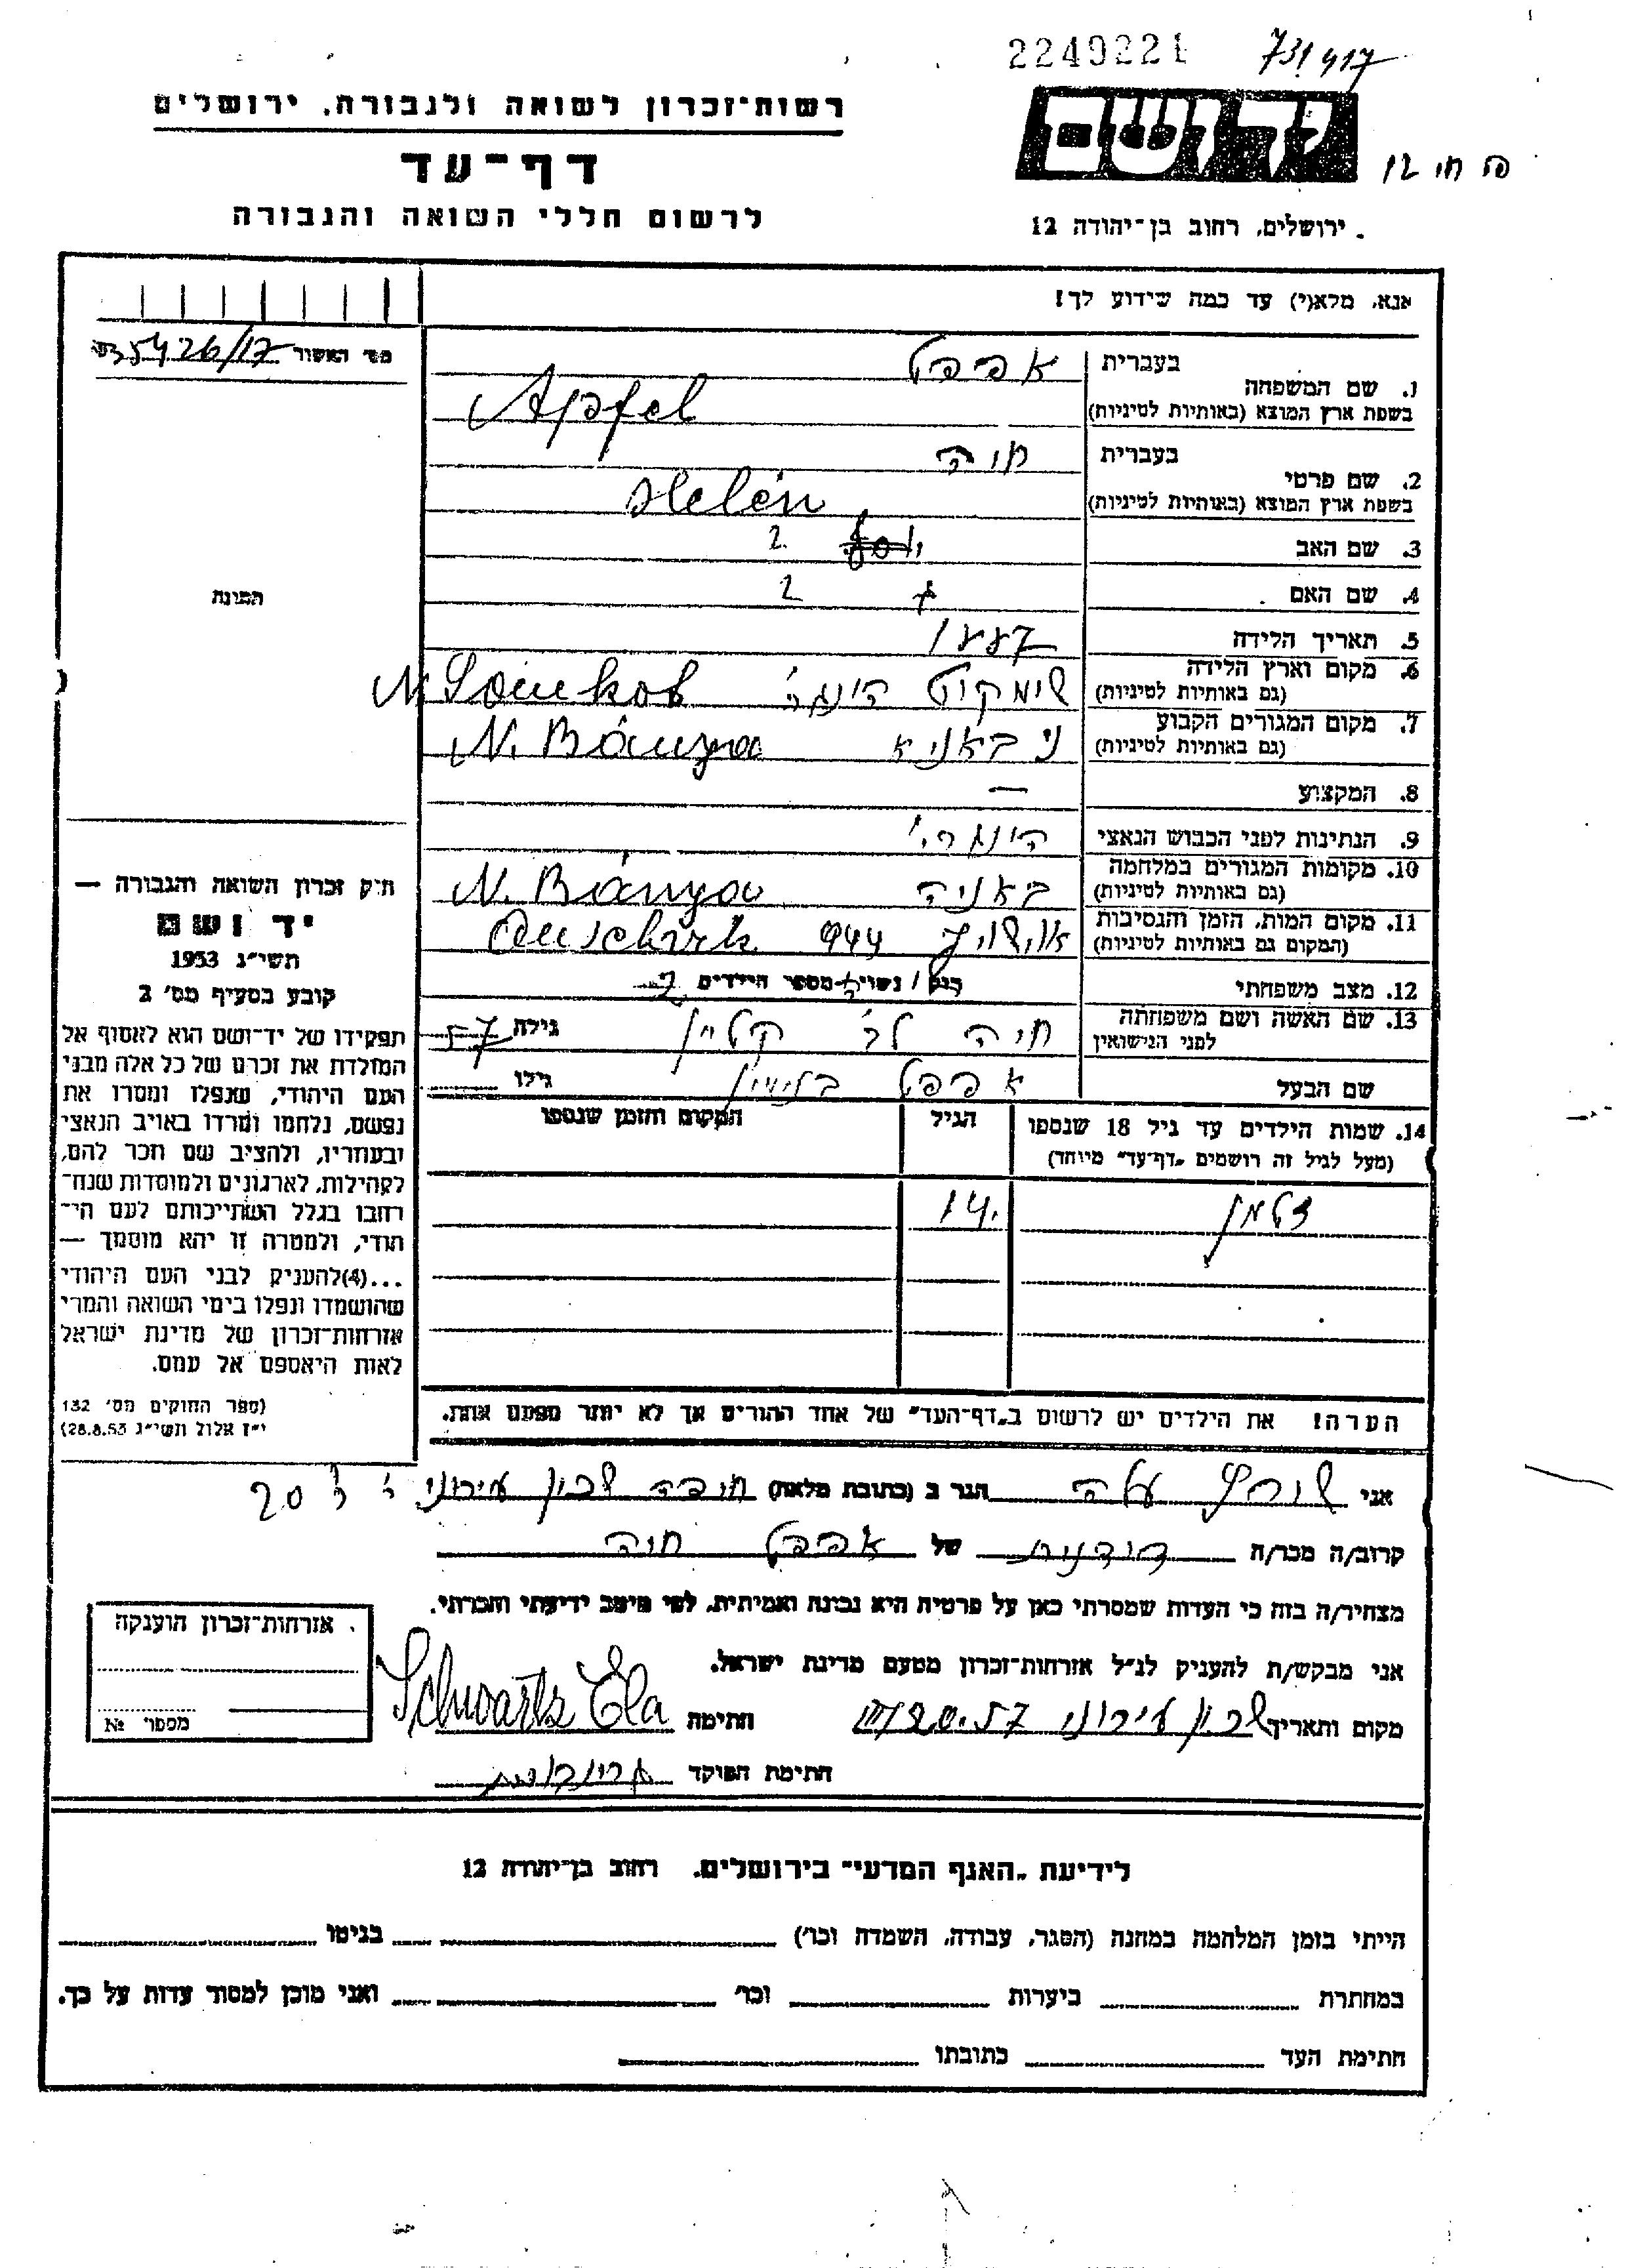 2249221
731417
רשות־זכרון לשואה ולגבורה, ירושלים
דף־עד
לרשום חללי השואה והגבורה
יד ושם
ירושלים, רחוב בן־יהודה 12
אנא, מלא(י) עד כמה שידוע לך!
מס' האשור 35426/17
1. שם המשפחה
בעברית אפפל
בשפת ארץ המוצא (באותיות לטיניות) Apfel
2. שם פרטי
בעברית חיה
בשפת ארץ המוצא (באותיות לטיניות) Helén
3. שם האב
4. שם האם
5. תאריך הלידה 1887
6. מקום וארץ הלידה
(גם באותיות לטיניות)
7. מקום המגורים הקבוע
(גם באותיות לטיניות) N. Bánya
8. המקצוע —
9. הנתינות לפני הכבוש הנאצי
10. מקומות המגורים במלחמה
(גם באותיות לטיניות) באניה N. Bánya
11. מקום המות, הזמן והנסיבות
(המקום גם באותיות לטיניות) 944
12. מצב משפחתי נשוי מספר הילדים
13. שם האשה ושם משפחתה
לפני הנישואין חיה לב' קליין גילה 57
שם הבעל אפפל בנימין גילו
14. שמות הילדים עד גיל 18 שנספו
(מעל לגיל זה רושמים „דף־עד" מיוחד)
הגיל
המקום והזמן שנספו
זלמן 14
הערה! את הילדים יש לרשום ב„דף־העד" של אחד ההורים אך לא יותר מפעם אחת.
תמונה
חוק זכרון השואה והגבורה —
יד ושם
תשי"ג 1953
קובע בסעיף מס' 2
תפקידו של יד־ושם הוא לאסוף אל
המולדת את זכרם של כל אלה מבני
העם היהודי, שנפלו ומסרו את
נפשם, נלחמו ומרדו באויב הנאצי
ובעוזריו, ולהציב שם וזכר להם,
לקהילות, לארגונים ולמוסדות שנח־
רבו בגלל השתייכותם לעם הי־
הודי, ולמטרה זו יהא מוסמך —
...(4)להעניק לבני העם היהודי
שהושמדו ונפלו בימי השואה והמרי
אזרחות־זכרון של מדינת ישראל
לאות היאספם אל עמם.
(ספר החוקים מס' 132
י"ז אלול תשי"ג 28.8.53)
אני שורץ עלה הגר ב (כתובת מלאה) חיפה שכון עירוני 20
קרוב/ה מכר/ה של אפפל חיה
מצהיר/ה בזה כי העדות שמסרתי כאן על פרטיה היא נכונה ואמיתית, לפי מיטב ידיעתי והכרתי.
אני מבקש/ת להעניק לנ"ל אזרחות־זכרון מטעם מדינת ישראל.
מקום ותאריך שכון עירוני חתימה Schwartz Ela
חתימת הפוקד
אזרחות־זכרון הוענקה
מספר №
לידיעת „האגף המדעי" בירושלים. רחוב בן־יהודה 12
הייתי בזמן המלחמה במחנה (הסגר, עבודה, השמדה וכו') בגיטו
במחתרת ביערות וכו' ואני מוכן למסור עדות על כך.
חתימת העד כתובתו